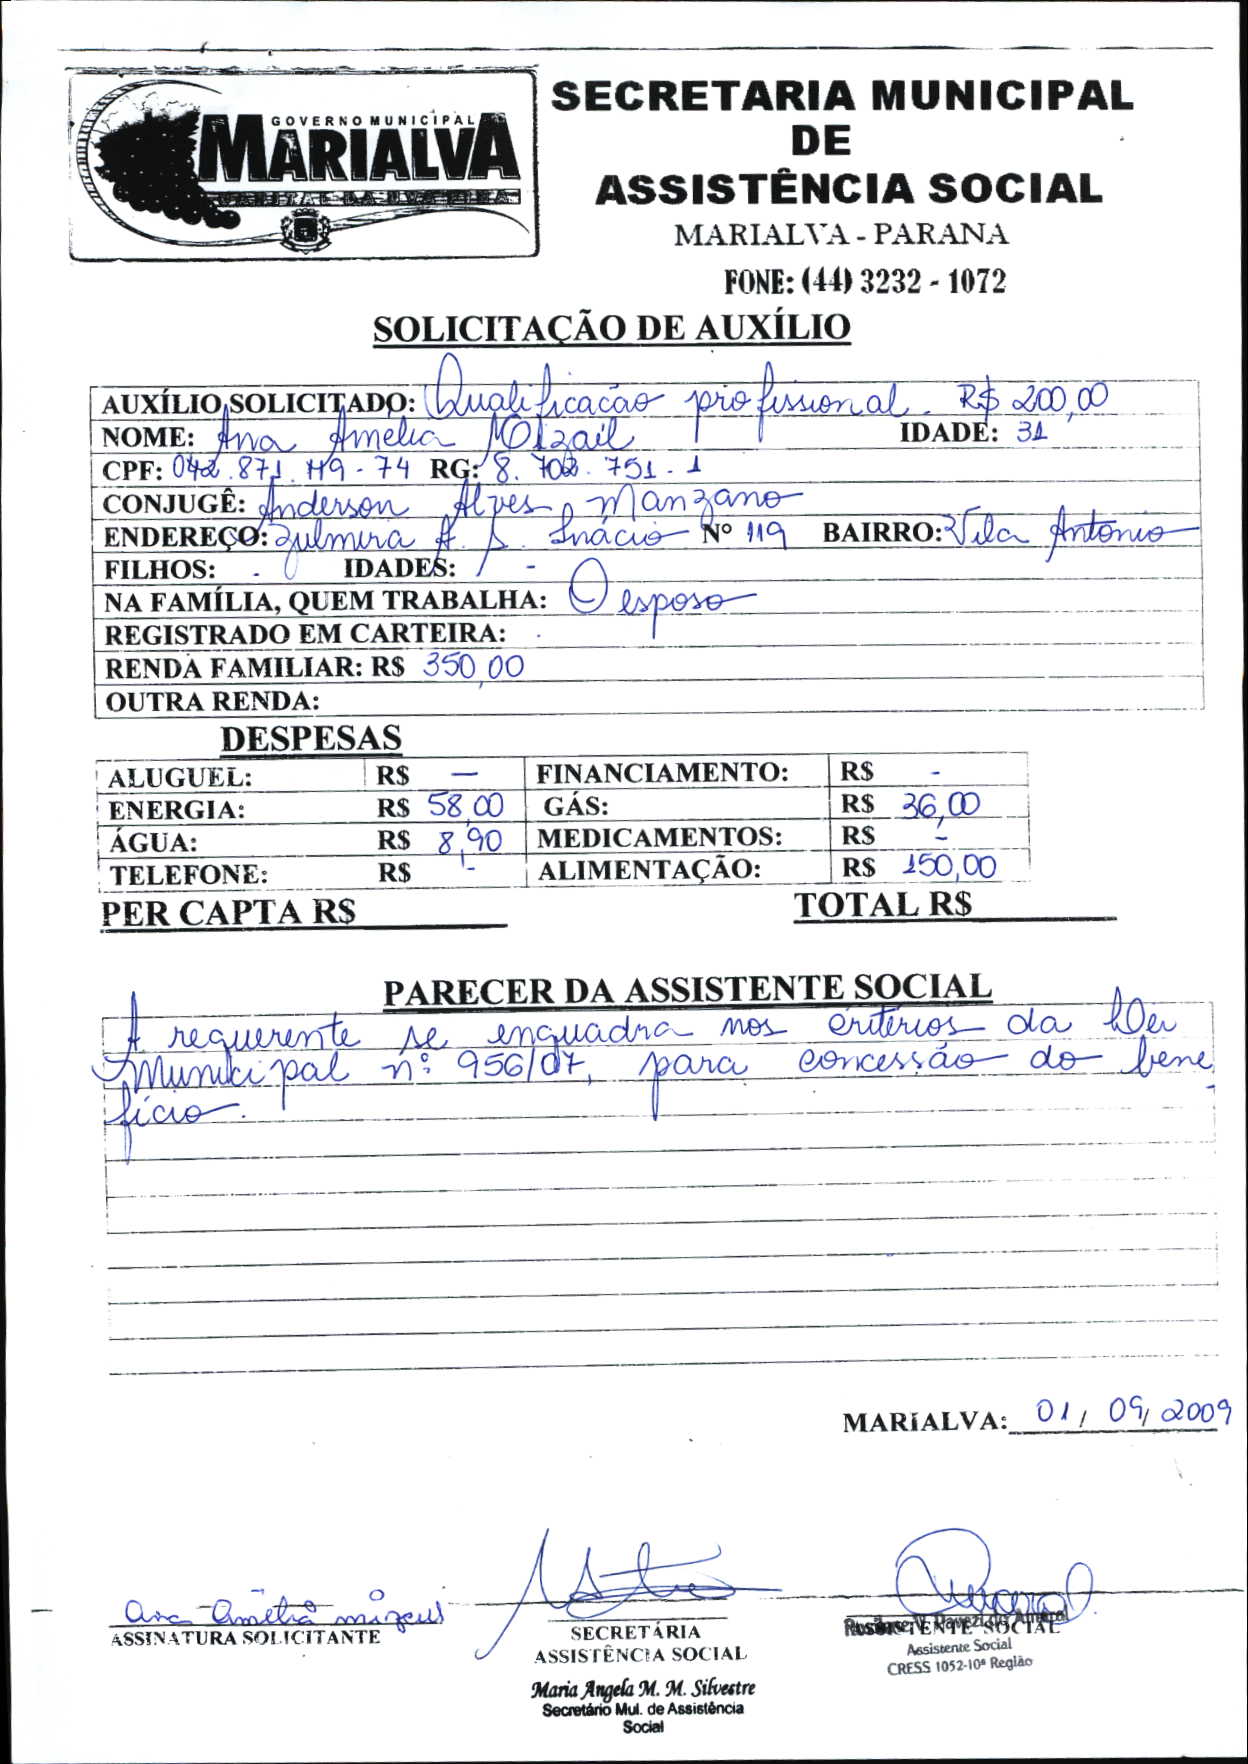 GOVERNO MUNICIPAL
MARIALVA
CAPITAL DA UVA FINA
SECRETARIA MUNICIPAL
DE
ASSISTÊNCIA SOCIAL
MARIALVA - PARANA
FONE: (44) 3232 - 1072
SOLICITAÇÃO DE AUXÍLIO
AUXÍLIO SOLICITADO: Qualificacão profissional. R$ 200,00
NOME: Ana Amelia IDADE: 31
CPF: 042.871.119-74 RG: 8.702.751-1
CONJUGÊ: Anderson Alves Manzano
ENDEREÇO: Zulmira A. S. Inácio Nº 119 BAIRRO: Vila Antonio
FILHOS: - IDADES: -
NA FAMÍLIA, QUEM TRABALHA: O esposo
REGISTRADO EM CARTEIRA: -
RENDA FAMILIAR: R$ 350,00
OUTRA RENDA:
DESPESAS
ALUGUEL: R$ — FINANCIAMENTO: R$ -
ENERGIA: R$ 58,00 GÁS: R$ 36,00
ÁGUA: R$ 8,90 MEDICAMENTOS: R$ -
TELEFONE: R$ - ALIMENTAÇÃO: R$ 150,00
PER CAPTA R$ TOTAL R$
PARECER DA ASSISTENTE SOCIAL
A requerente se enquadra nos critérios da Lei
Municipal nº 956/07, para concessão do bene
fício.
MARIALVA: 01/09/2009
Ana Amelia
ASSINATURA SOLICITANTE
SECRETÁRIA
ASSISTÊNCIA SOCIAL
Maria Angela M. M. Silvestre
Secretário Mul. de Assistência
Social
ASSISTENTE SOCIAL
Assistente Social
CRESS 1052-10ª Região